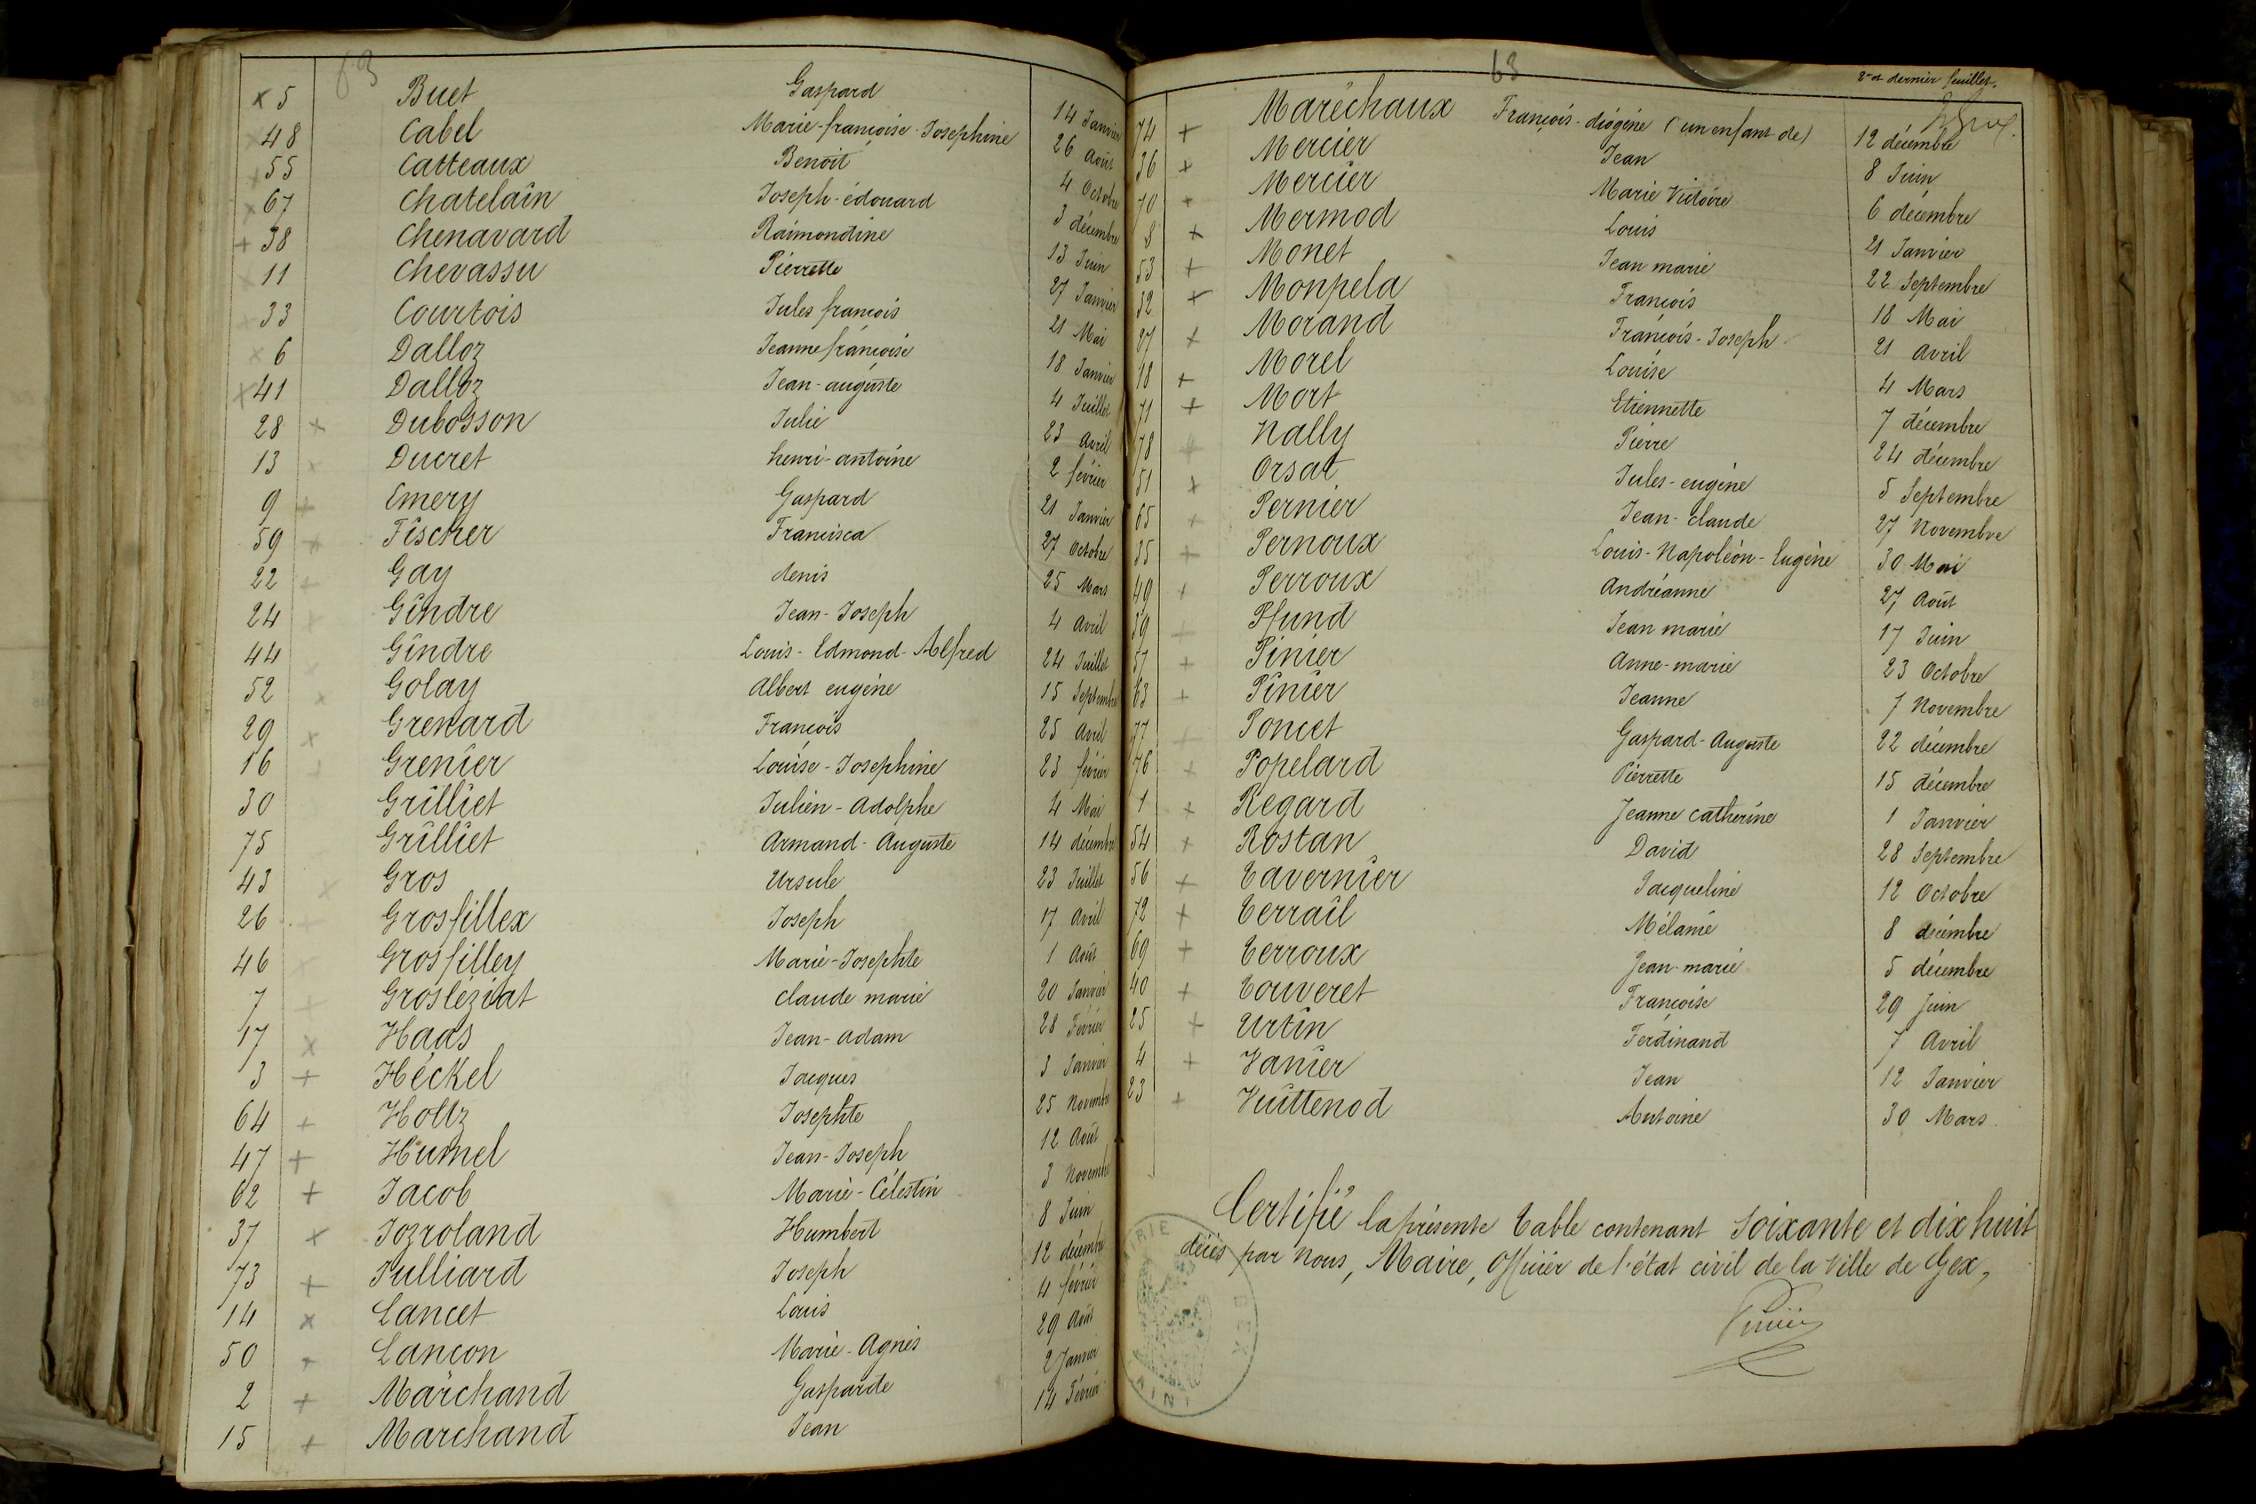 63
5 Buet Gaspard 14 Janvier
48 Cabel Marie-françoise-Josephine 26 Août
55 Catteaux Benoit 4 Octobre
67 Chatelain Joseph-édouard 3 décembre
38 Chenavard Raimondine 13 Juin
11 Chevassu Pierrette 27 Janvier
33 Courtois Jules françois 21 Mai
6 Dalloz Jeanne françoise 18 Janvier
41 Dalloz Jean-auguste 4 Juillet
28 Dubosson Julie 23 Avril
13 Ducret henri-antoine 2 février
9 Emery Gaspard 21 Janvier
59 Fischer Francisca 27 Octobre
22 Gay denis 25 Mars
24 Gindre Jean-Joseph 4 Avril
44 Gindre Louis-Edmond-Alfred 24 Juillet
52 Golay Albert eugène 15 Septembre
29 Grenard François 25 Avril
16 Grenier Louise-Josephine 23 février
30 Grilliet Julien-Adolphe 4 Mai
75 Grilliet Armand-Auguste 14 décembre
43 Gros Ursule 23 Juillet
26 Grosfillex Joseph 17 Avril
46 Grosfilley Marie-Josephte 1 Août
7 Grosléziat claude marie 20 Janvier
17 Haas Jean-Adam 28 Février
3 Héckel Jacques 3 Janvier
64 Holtz Josephte 25 Novembre
47 Humel Jean-Joseph 12 Août
62 Jacob Marie-Célestin 3 Novembre
37 Jozroland Humbert 8 Juin
73 Julliard Joseph 12 décembre
14 Lancet Louis 4 février
50 Lançon Marie-Agnès 29 Août
2 Marchand Gasparde 2 Janvier
15 Marchand Jean 14 Février
63
2e et dernier feuillet.
74 Maréchaux François-diogène (un enfant de) 12 décembre
36 Mercier Jean 8 Juin
70 Mercier Marie Victoire 6 décembre
8 Mermod Louis 21 Janvier
53 Monet Jean marie 22 Septembre
32 Monpela François 18 Mai
27 Morand François-Joseph 21 Avril
18 Morel Louise 4 Mars
71 Mort Etiennette 7 décembre
78 Nally Pierre 24 décembre
51 Orsat Jules-eugène 5 Septembre
65 Pernier Jean-claude 27 Novembre
35 Pernoux Louis-Napoléon-Eugène 30 Mai
49 Perroux Andréanne 27 Août
39 Pfund Jean marie 17 Juin
57 Pinier Anne-marie 23 Octobre
63 Pinier Jeanne 7 Novembre
77 Poncet Gaspard-Auguste 22 décembre
76 Popelard Pierrette 15 décembre
1 Regard Jeanne catherine 1 Janvier
54 Rostan David 28 Septembre
56 Tavernier Jacqueline 12 Octobre
72 Terrail Mélanie 8 décembre
69 Terroux Jean-marie 5 décembre
40 Touveret Françoise 29 Juin
25 Urtin Ferdinand 7 Avril
4 Vanier Jean 12 Janvier
23 Vuittenod Antoine 30 Mars
Certifié la présente Table contenant Soixante et dix huit
décès par Nous, Maire, Officier de l'état civil de la Ville de Gex,
MAIRIE GEX
AIN